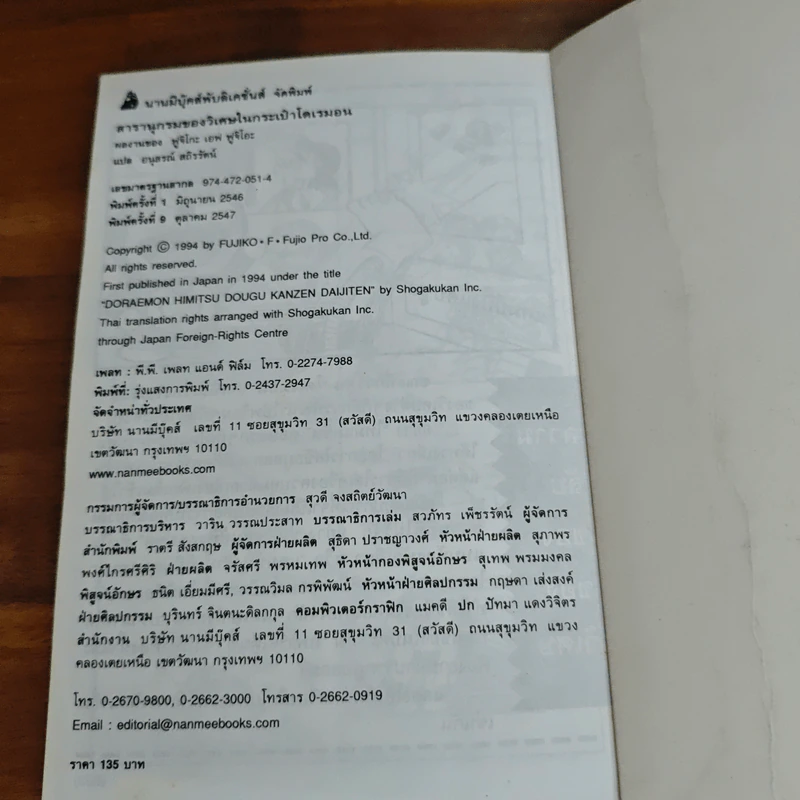 นานมีบุ๊คส์พับลิเคชั่นส์ จัดพิมพ์
สารานุกรมของวิเศษในกระเป๋าโดเรมอน
ผลงานของ ฟูจิโกะ เอฟ ฟูจิโอะ
แปล อนุสรณ์ สถิรรัตน์
เลขมาตรฐานสากล 974-472-051-4
พิมพ์ครั้งที่ 1 มิถุนายน 2546
พิมพ์ครั้งที่ 9 ตุลาคม 2547
Copyright © 1994 by FUJIKO • F • Fujio Pro Co.,Ltd.
All rights reserved.
First published in Japan in 1994 under the title
"DORAEMON HIMITSU DOUGU KANZEN DAIJITEN" by Shogakukan Inc.
Thai translation rights arranged with Shogakukan Inc.
through Japan Foreign-Rights Centre
เพลท : พี.พี. เพลท แอนด์ ฟิล์ม โทร. 0-2274-7988
พิมพ์ที่: รุ่งแสงการพิมพ์ โทร. 0-2437-2947
จัดจำหน่ายทั่วประเทศ
บริษัท นานมีบุ๊คส์ เลขที่ 11 ซอยสุขุมวิท 31 (สวัสดี) ถนนสุขุมวิท แขวงคลองเตยเหนือ
เขตวัฒนา กรุงเทพฯ 10110
www.nanmeebooks.com
กรรมการผู้จัดการ/บรรณาธิการอำนวยการ สุวดี จงสถิตย์วัฒนา
บรรณาธิการบริหาร วาริน วรรณประสาท บรรณาธิการเล่ม สวภัทร เพ็ชรรัตน์ ผู้จัดการ
สำนักพิมพ์ ราตรี สังสกฤษ ผู้จัดการฝ่ายผลิต สุธิดา ปราชญาวงศ์ หัวหน้าฝ่ายผลิต สุภาพร
พงค์ไกรศรีศิริ ฝ่ายผลิต จรัสศรี พรหมเทพ หัวหน้ากองพิสูจน์อักษร สุเทพ พรมมงคล
พิสูจน์อักษร ธนิต เอี่ยมมีศรี, วรรณวิมล กรพิพัฒน์ หัวหน้าฝ่ายศิลปกรรม กฤษดา เส่งสงค์
ฝ่ายศิลปกรรม บุรินทร์ จินตนะดิลกกุล คอมพิวเตอร์กราฟิก แมคดี ปก ปัทมา แดงวิจิตร
สำนักงาน บริษัท นานมีบุ๊คส์ เลขที่ 11 ซอยสุขุมวิท 31 (สวัสดี) ถนนสุขุมวิท แขวง
คลองเตยเหนือ เขตวัฒนา กรุงเทพฯ 10110
โทร. 0-2670-9800, 0-2662-3000 โทรสาร 0-2662-0919
Email : editorial@nanmeebooks.com
ราคา 135 บาท